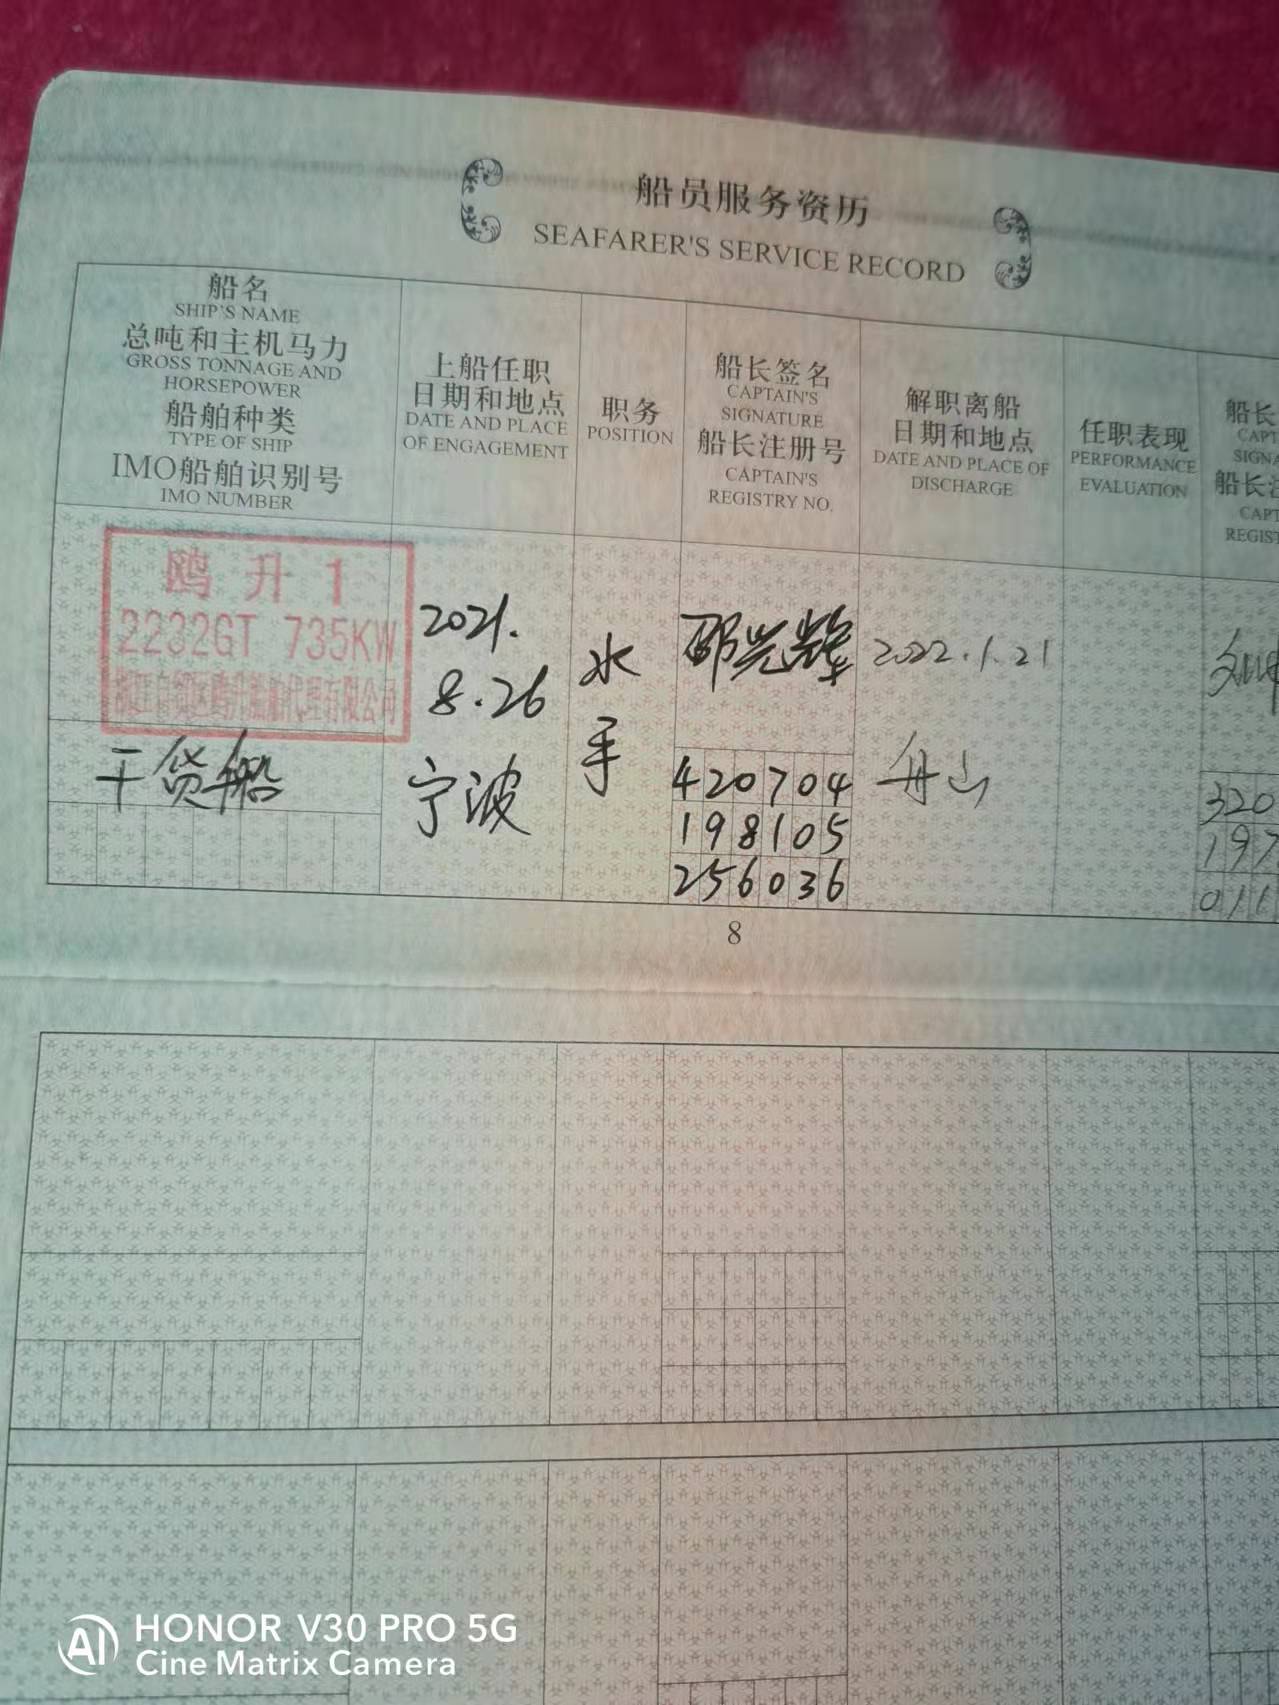 船员服务资历
SEAFARER'S SERVICE RECORD
船名
SHIP'S NAME
总吨和主机马力
GROSS TONNAGE AND
HORSEPOWER
船舶种类
TYPE OF SHIP
IMO船舶识别号
IMO NUMBER
上船任职
日期和地点
DATE AND PLACE
OF ENGAGEMENT
职务
POSITION
船长签名
CAPTAIN'S
SIGNATURE
船长注册号
CAPTAIN'S
REGISTRY NO.
解职离船
日期和地点
DATE AND PLACE OF
DISCHARGE
任职表现
PERFORMANCE
EVALUATION
船长
CAPT
SIGNA
船长
CAPT
REGIST
鸥升1
2232GT 735KW
船舶代理有限公司
干货船
2021.
8.26
宁波
水
手
邵光辉
420704
198105
256036
2022.1.21
舟山
320
197
011
8
AI HONOR V30 PRO 5G
Cine Matrix Camera